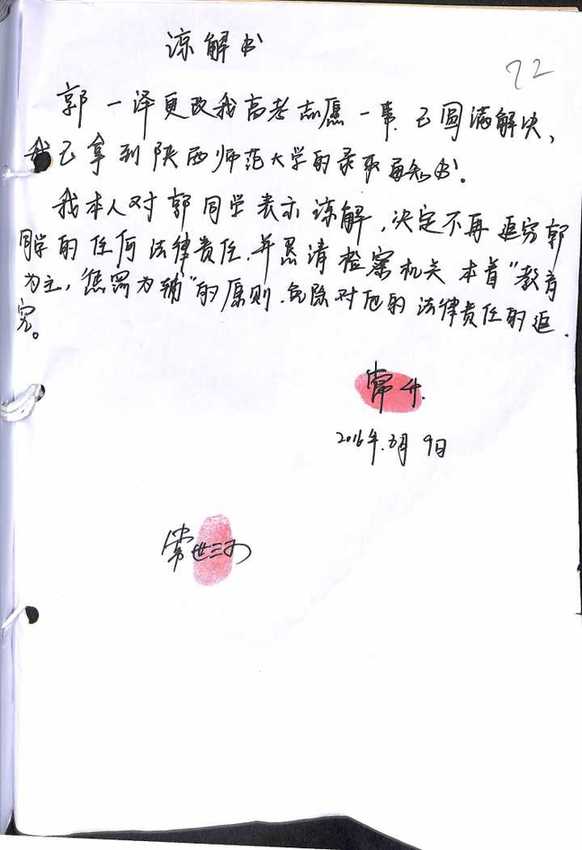 谅解书
72
郭一泽更改我高考志愿一事.已圆满解决,
我已拿到陕西师范大学的录取通知书。
我本人对郭同学表示谅解,决定不再追究郭
同学的任何法律责任.并恳请检察机关本着“教育
为主,惩罚为辅”的原则.免除对他的法律责任的追
究。
常升.
2016年.8月9日
常世三